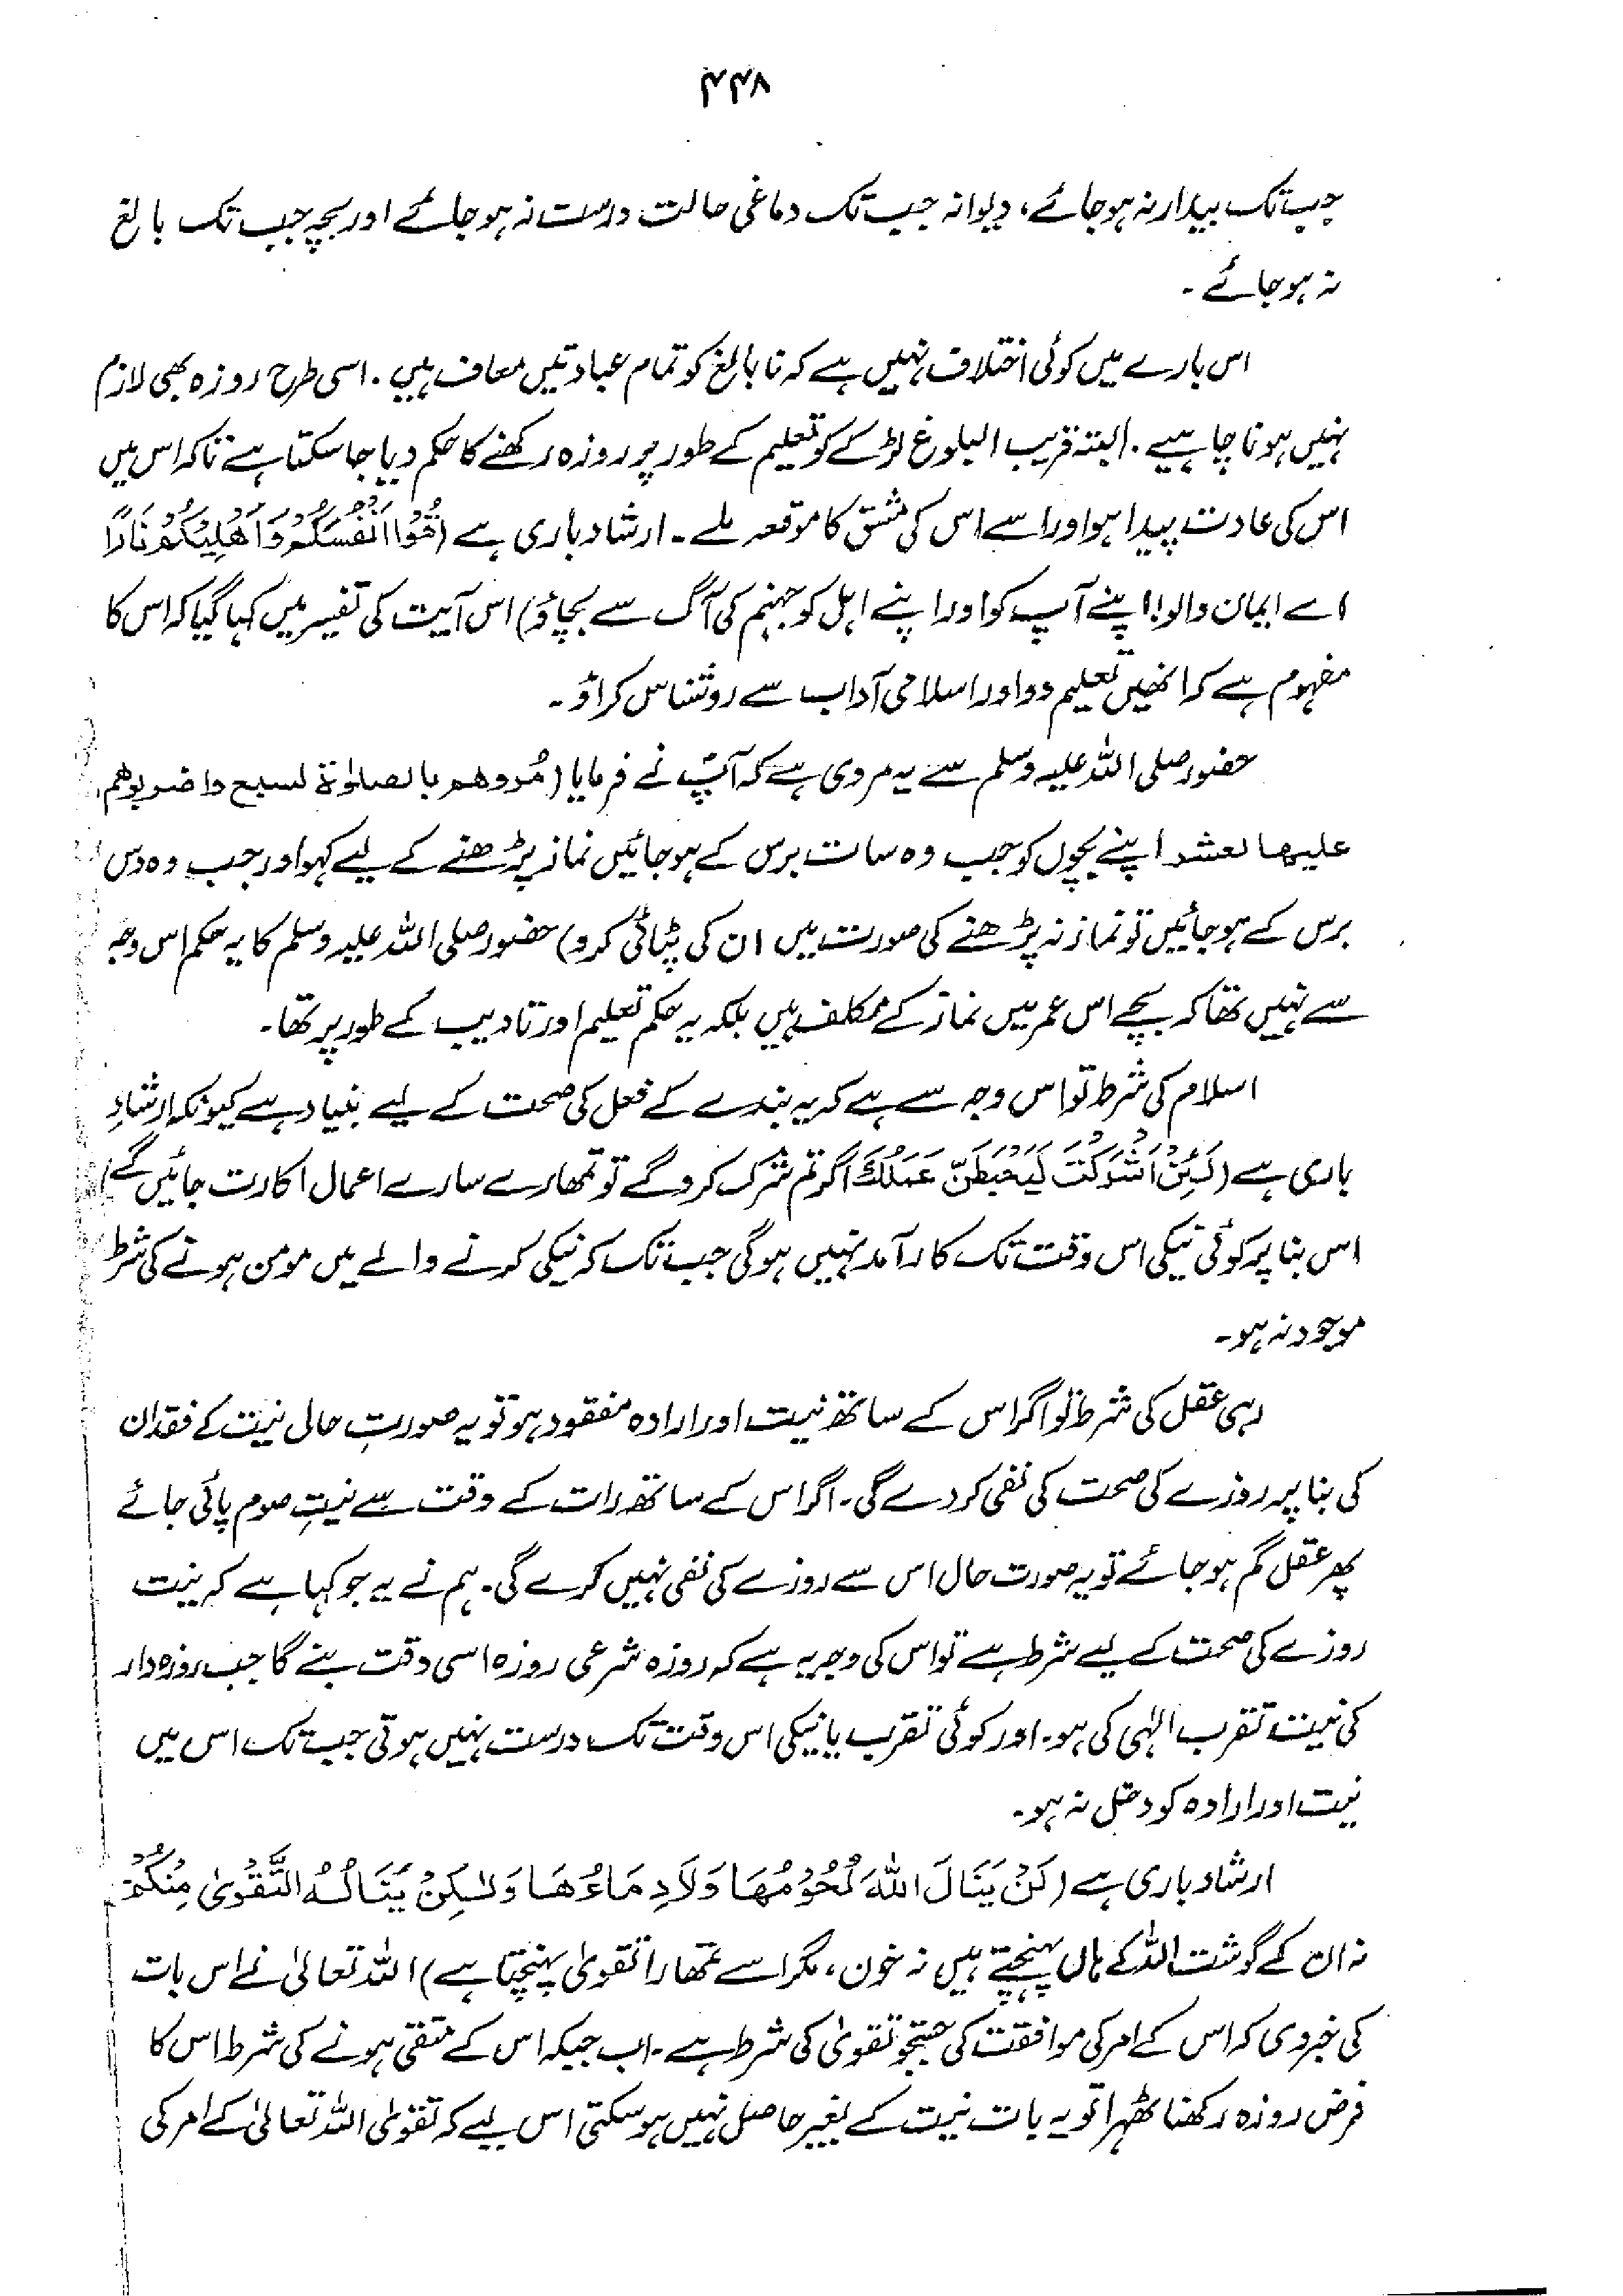 ۴۴۸
جب تک بیدار نہ ہو جائے، دیوانہ جب تک دماغی حالت درست نہ ہو جائے اور بچہ جب تک بالغ
نہ ہو جائے ۔
اس بارے میں کوئی اختلاف نہیں ہے کہ نابالغ کو تمام عبادتیں معاف ہیں ۔ اسی طرح روزہ بھی لازم
نہیں ہونا چاہیے ۔ البتہ قریب البلوغ لڑکے کو تعلیم کے طور پر روزہ رکھنے کا حکم دیا جا سکتا ہے تاکہ اس میں
اس کی عادت پیدا ہو اور اسے اس کی مشق کا موقعہ ملے ۔ ارشاد باری ہے (قُوْا اَنْفُسَكُمْ وَاَهْلِيْكُمْ نَارًا
اے ایمان والو! اپنے آپ کو اور اپنے اہل کو جہنم کی آگ سے بچاؤ) اس آیت کی تفسیر میں کہا گیا کہ اس کا
مفہوم ہے کہ انھیں تعلیم دو اور اسلامی آداب سے روشناس کراؤ ۔
حضور صلی اللہ علیہ وسلم سے یہ مروی ہے کہ آپؐ نے فرمایا (مُروهم بالصلوٰة لسبع واضربوهم
عليها لعشر اپنے بچوں کو جب وہ سات برس کے ہو جائیں نماز پڑھنے کے لیے کہو اور جب وہ دس
برس کے ہو جائیں تو نماز نہ پڑھنے کی صورت میں ان کی پٹائی کرو) حضور صلی اللہ علیہ وسلم کا یہ حکم اس وجہ
سے نہیں تھا کہ بچے اس عمر میں نماز کے مکلف ہیں بلکہ یہ حکم تعلیم اور تادیب کے طور پر تھا ۔
اسلام کی شرط تو اس وجہ سے ہے کہ یہ بندے کے فعل کی صحت کے لیے بنیاد ہے کیونکہ ارشادِ
باری ہے (لَئِنْ اَشْرَكْتَ لَيَحْبَطَنَّ عَمَلُكَ اگر تم شرک کرو گے تو تمھارے سارے اعمال اکارت جائیں گے)
اس بنا پر کوئی نیکی اس وقت تک کارآمد نہیں ہوگی جب تک کہ نیکی کرنے والے میں مومن ہونے کی شرط
موجود نہ ہو ۔
رہی عقل کی شرط تو اگر اس کے ساتھ نیت اور ارادہ مفقود ہو تو یہ صورتِ حالی نیت کے فقدان
کی بنا پر روزے کی صحت کی نفی کر دے گی ۔ اگر اس کے ساتھ رات کے وقت سے نیتِ صوم پائی جائے
پھر عقل گم ہو جائے تو یہ صورت حال اس سے روزے کی نفی نہیں کرے گی ۔ ہم نے یہ جو کہا ہے کہ نیت
روزے کی صحت کے لیے شرط ہے تو اس کی وجہ یہ ہے کہ روزہ شرعی روزہ اسی وقت بنے گا جب روزہ دار
کی نیت تقرب الٰہی کی ہو ۔ اور کوئی تقرب یا نیکی اس وقت تک درست نہیں ہوتی جب تک اس میں
نیت اور ارادہ کو دخل نہ ہو ۔
ارشاد باری ہے (لَنْ يَنَالَ اللّٰهَ لُحُوْمُهَا وَلَا دِمَاءُهَا وَلٰكِنْ يَنَالُهُ التَّقْوٰى مِنْكُمْ
نہ ان کے گوشت اللہ کے ہاں پہنچتے ہیں نہ خون، مگر اسے تمھارا تقویٰ پہنچتا ہے) اللہ تعالیٰ نے اس بات
کی خبر دی کہ اس کے امر کی موافقت کی جستجو تقویٰ کی شرط ہے ۔ اب جبکہ اس کے متقی ہونے کی شرط اس کا
فرض روزہ رکھنا ٹھہرا تو یہ بات نیت کے بغیر حاصل نہیں ہو سکتی اس لیے کہ تقویٰ اللہ تعالیٰ کے امر کی